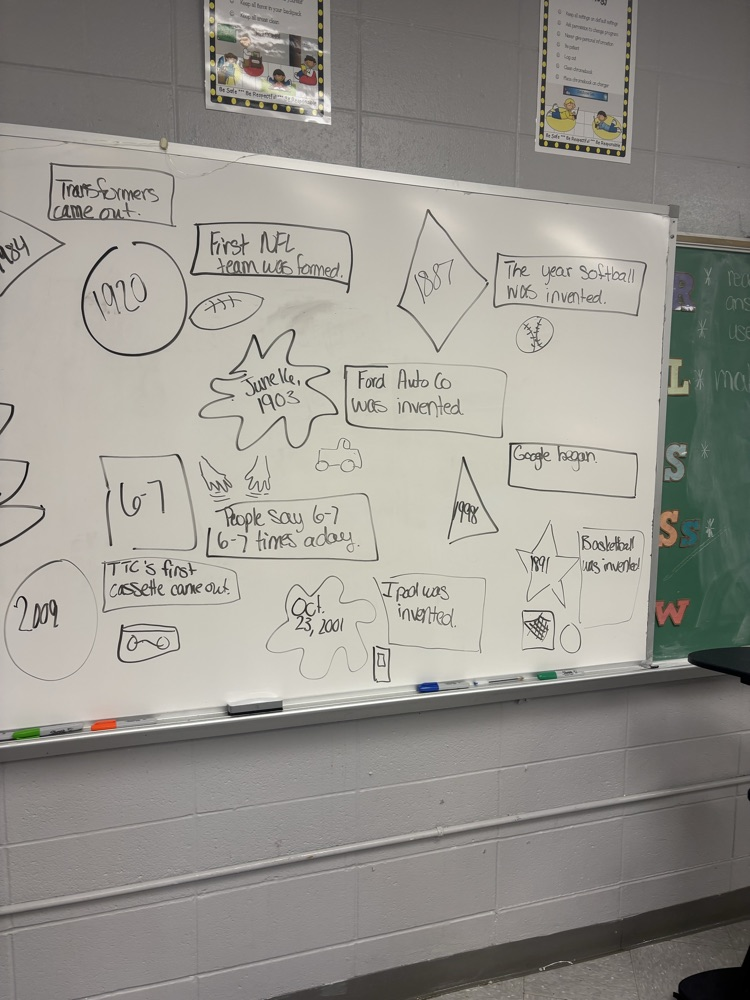 Keep all items in your backpack
Keep all areas clean
Be Safe *** Be Respectful *** Be
Keep all settings on default settings
Ask permission to change programs
Never give personal information
Be patient
Log out
Clean chromebook
Place chromebook on charger
Be Safe *** Be Respectful *** Be Responsible
Transformers
came out.
1984
1920
First NFL
team was formed.
1887
The year softball
was invented.
June 16,
1903
Ford Auto Co
was invented
6-7
People say 6-7
6-7 times a day.
1998
Google began.
2009
TTC's first
cassette came out.
Oct.
23, 2001
Ipod was
invented.
1891
Basketball
was invented
R *
*
use
L * ma
S *
Ss *
W